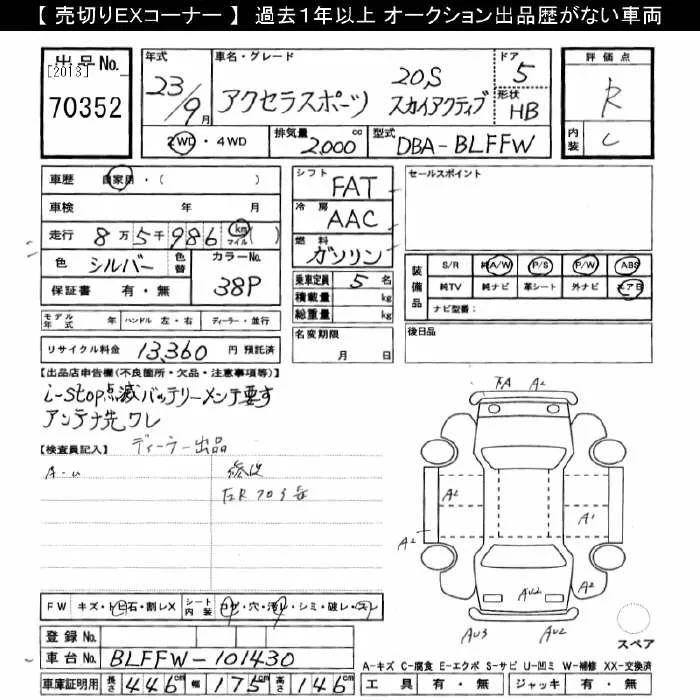 【 売切りEXコーナー 】 過去1年以上 オークション出品歴がない車両
出品No.
[2013]
70352
年式
23/9月
車名・グレード
20S
アクセラスポーツ スカイアクティブ
ドア
5
形状
HB
2WD・4WD
排気量 2,000 cc
型式 DBA-BLFFW
評価点
R
内装
C
車歴 自家用・( )
車検 年 月
走行 8万5千986 km マイル ( )
色 シルバー 色替
カラーNo.
38P
保証書 有・無
モデル年式 年 ハンドル 左・右 ディーラー・並行
リサイクル料金 13,360 円 預託済
シフト
FAT
冷房
AAC
燃料
ガソリン
乗車定員 5 名
積載量 kg
総重量 kg
名変期限
月 日
セールスポイント
装備品
S/R 純A/W P/S P/W ABS
純TV 純ナビ 革シート 外ナビ エアB
ナビ型番:
後日品
【出品店申告欄(不良箇所・欠品・注意事項等)】
i-stop点滅バッテリーメンテ要す
アンテナ先ワレ
【検査員記入】 ディーラー出品
A-u
修復
A2
A2
A1
A2
A2
AU2
AU3
AU2
FW キズ・トビ石・割レX
シート内装 コゲ・穴・汚レ・シミ・破レ・スレ
登録No.
車台No. BLFFW-101430
車庫証明用 長さ 446cm 幅 175cm 高さ 146cm
スペア
A-キズ C-腐食 E-エクボ S-サビ U-凹ミ W-補修 XX-交換済
工具 有・無 ジャッキ 有・無